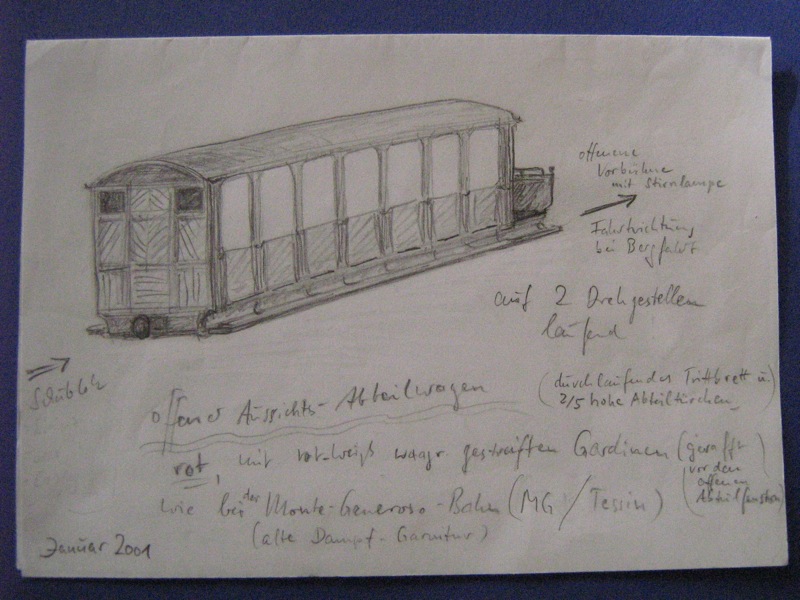 offenene
Vorbühne
mit Stirnlampe
Fahrtrichtung
bei Bergfahrt
auf 2 Drehgestellen
laufend
Schublok
offener Aussichts-Abteilwagen
(durchlaufendes Trittbrett u.
2/5 hohe Abteiltürchen)
rot, mit rot-weiß waagr. gestreiften Gardinen (gerafft
vor den
offenen
Abteilfenstern)
wie bei der Monte-Generoso-Bahn (MG/Tessin)
(alte Dampf-Garnitur)
Januar 2001